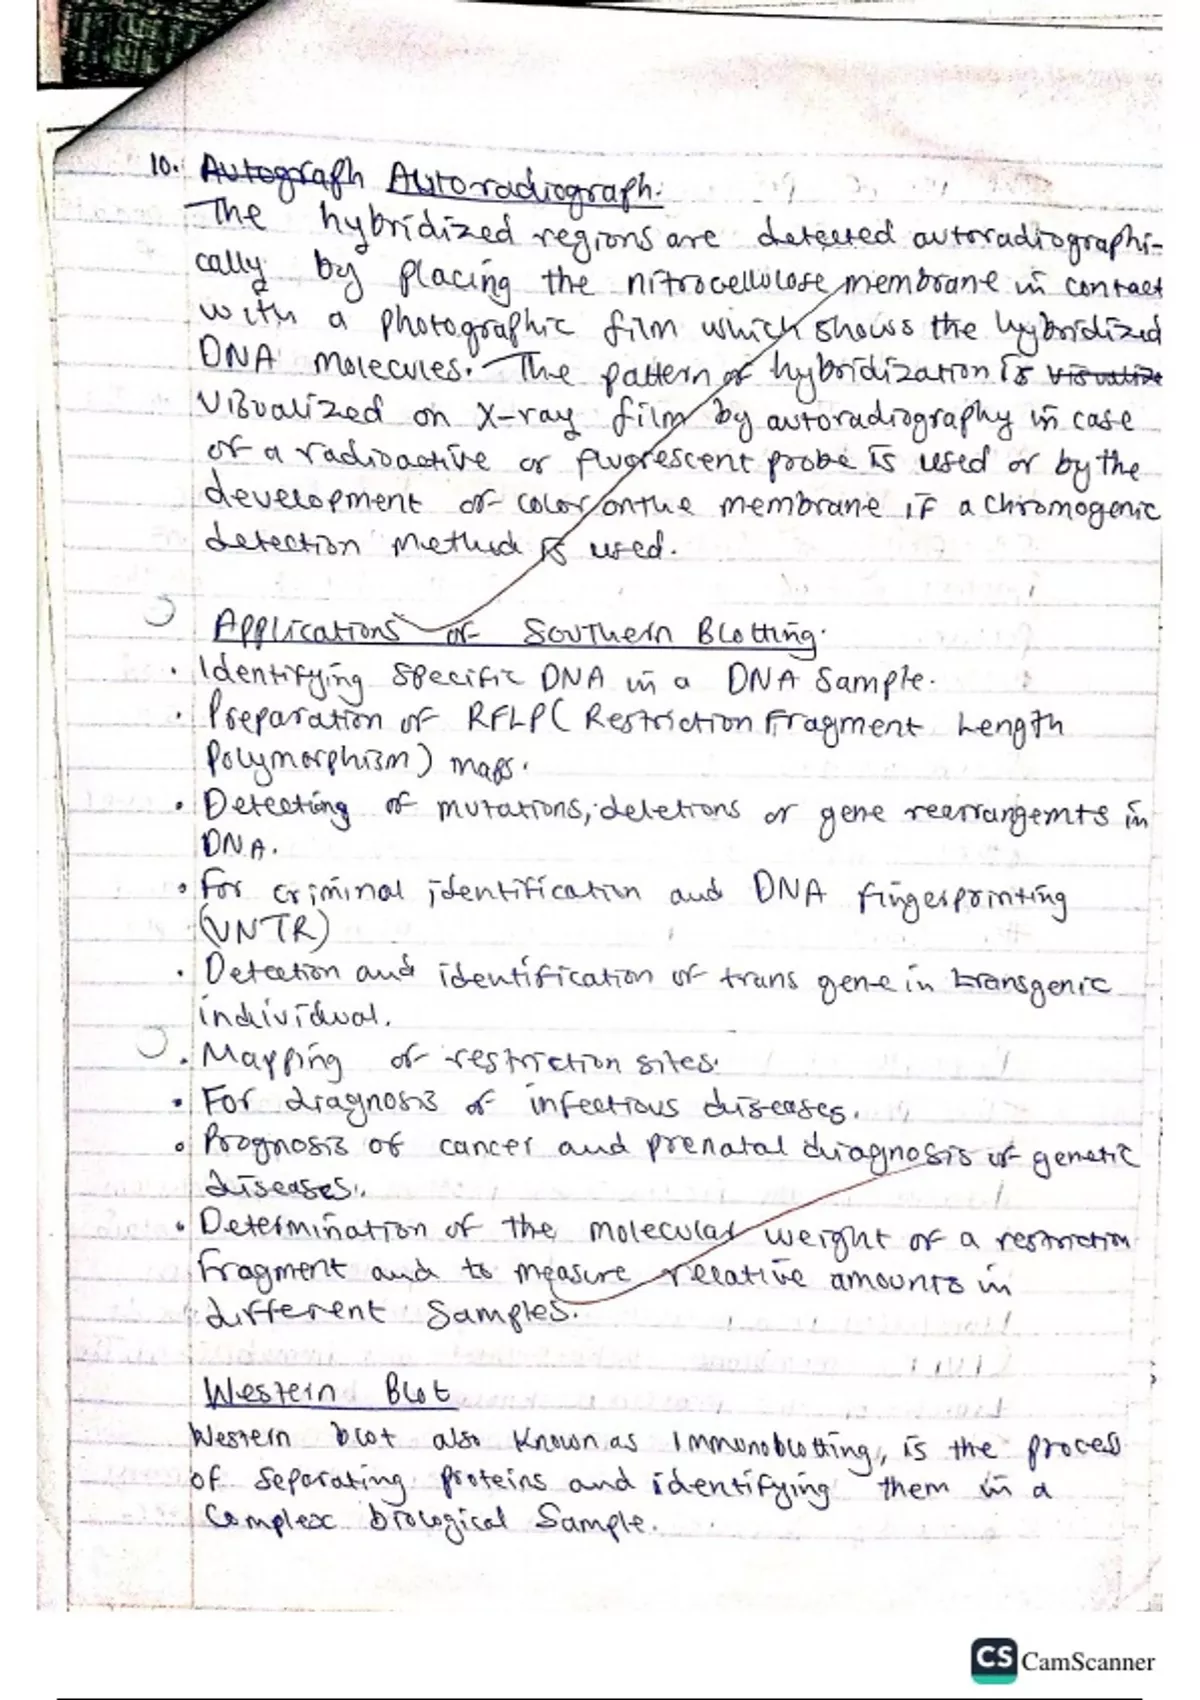 10. Autograph Autoradiograph.
The hybridized regions are detected autoradiographi-
cally by placing the nitrocellulose membrane in contact
with a photographic film which shows the hybridized
DNA molecules. The pattern of hybridization is visualize
visualized on X-ray film by autoradiography in case
of a radioactive or fluorescent probe is used or by the
development of color on the membrane if a chromogenic
detection method is used.
Applications of Southern Blotting.
• Identifying specific DNA in a DNA Sample.
• Preparation of RFLP (Restriction Fragment Length
Polymorphism) maps.
• Detecting of mutations, deletions or gene rearrangemts in
DNA.
• For criminal identification and DNA fingerprinting
(VNTR)
• Detection and identification of trans gene in transgenic
individual.
• Mapping of restriction sites.
• For diagnosis of infectious diseases.
• Prognosis of cancer and prenatal diagnosis of genetic
diseases.
• Determination of the molecular weight of a restriction
fragment and to measure relative amounts in
different Samples.
Western Blot
Western blot also known as Immunoblotting, is the process
of separating proteins and identifying them in a
Complex biological Sample.
CS CamScanner